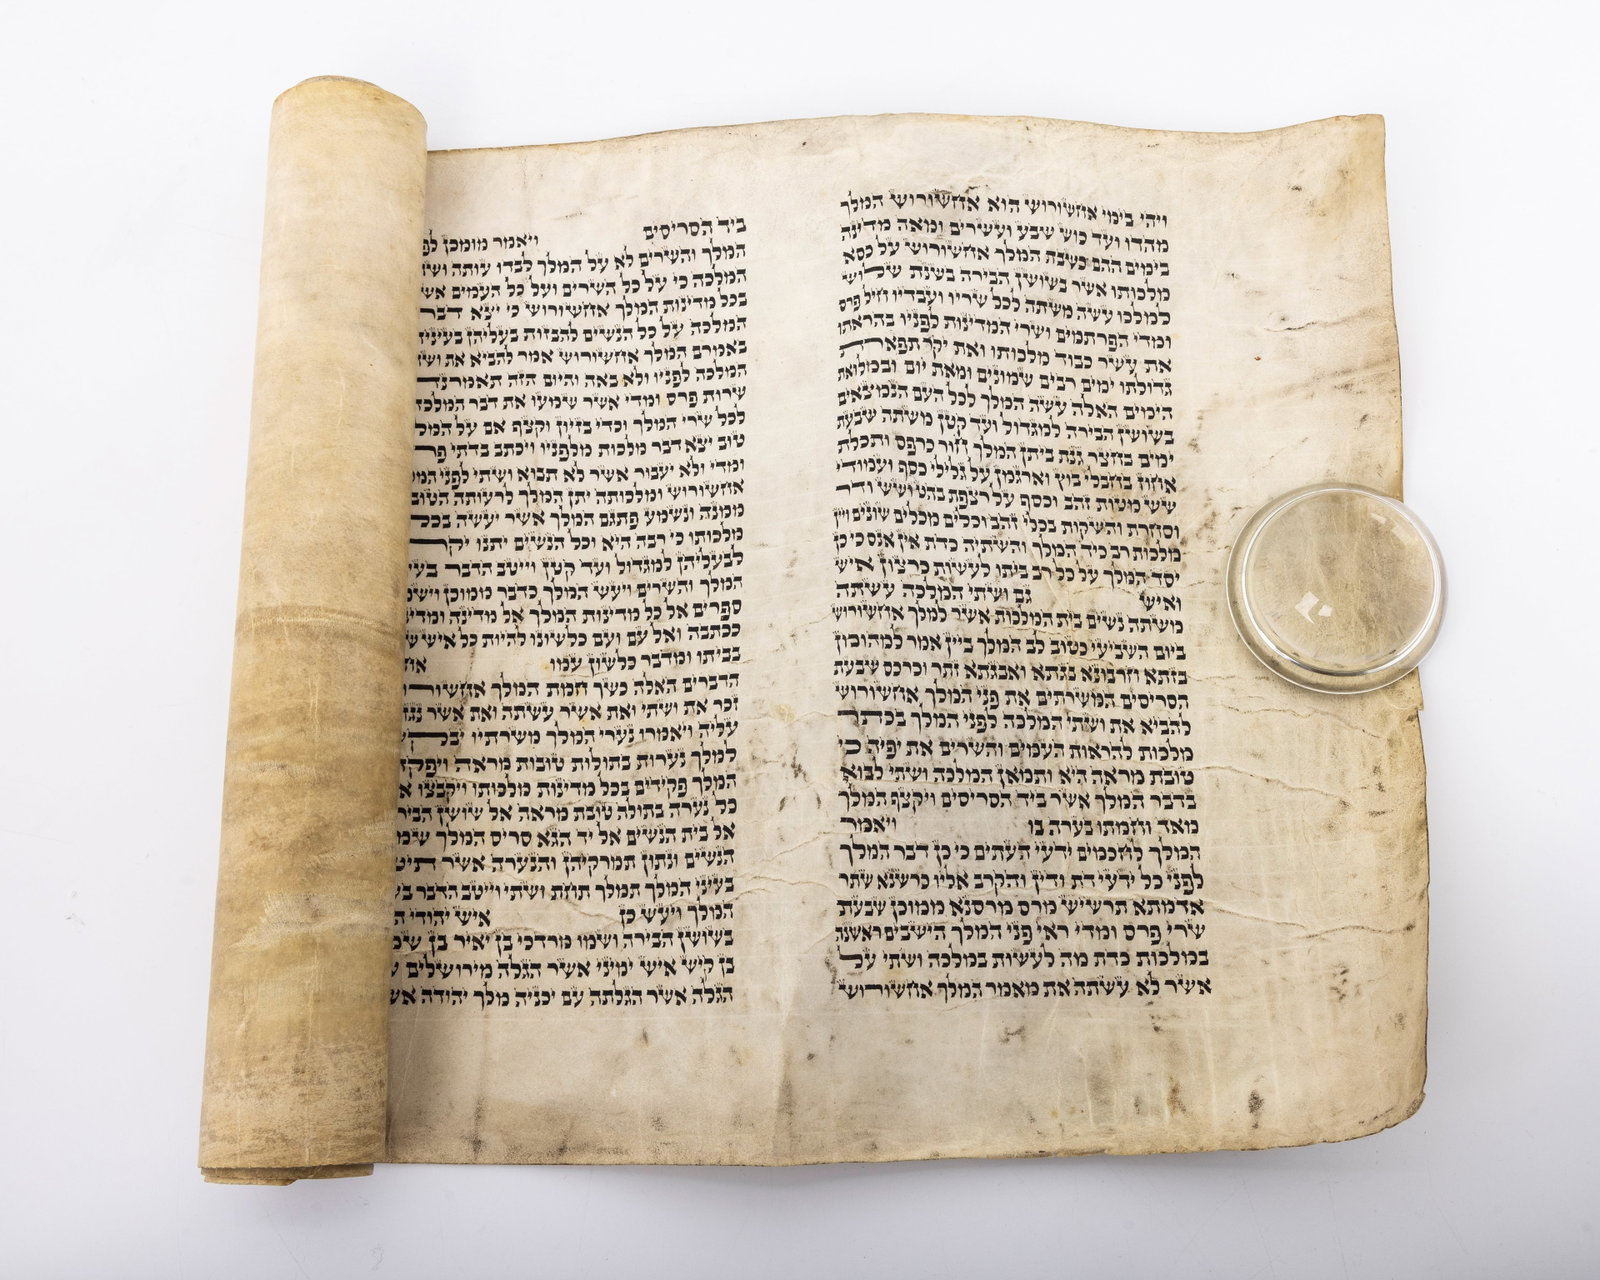 ויהי בימי אחשורוש הוא אחשורוש המלך
מהדו ועד כוש שבע ועשרים ומאה מדינה
בימים ההם כשבת המלך אחשורוש על כסא
מלכותו אשר בשושן הבירה בשנת שלוש
למלכו עשה משתה לכל שריו ועבדיו חיל פרס
ומדי הפרתמים ושרי המדינות לפניו בהראתו
את עשר כבוד מלכותו ואת יקר תפארת
גדולתו ימים רבים שמונים ומאת יום ובמלואת
הימים האלה עשה המלך לכל העם הנמוצאים
בשושן הבירה למגדול ועד קטן משתה שבעת
ימים בחצר גנת ביתן המלך חור כרפס ותכלת
אחוז בחבלי בוץ וארגמן על גלילי כסף ועמודי
שש מטות זהב וכסף על רצפת בהט ושש ודר
וסחרת והשקות בכלי זהב וכלים מכלים שונים ויין
מלכות רב כיד המלך והשתיה כדת אין אנס כי כן
יסד המלך על כל רב ביתו לעשות כרצון איש
ואיש גם ושתי המלכה עשתה
משתה נשים בית המלכות אשר למלך אחשורוש
ביום השביעי כטוב לב המלך ביין אמר למהומן
בזתא וחרבונא בגתא ואבגתא זתר וכרכס שבעת
הסריסים המשרתים את פני המלך אחשורוש
להביא את ושתי המלכה לפני המלך בכתר
מלכות להראות העמים והשרים את יפיה כי
טובת מראה היא ותמאן המלכה ושתי לבוא
בדבר המלך אשר ביד הסריסים ויקצף המלך
מאד וחמתו בערה בו ויאמר
המלך לחכמים ידעי העתים כי כן דבר המלך
לפני כל ידעי דת ודין והקרב אליו כרשנא שתר
אדמתא תרשיש מרס מרסנא ממוכן שבעת
שרי פרס ומדי ראי פני המלך הישבים ראשנה
במלכות כדת מה לעשות במלכה ושתי על
אשר לא עשתה את מאמר המלך אחשורוש
ביד הסריסים ויאמר מומכן
המלך והשרים לא על המלך לבדו עותה
המלכה כי על כל השרים ועל כל העמים
בכל מדינות המלך אחשורוש כי יצא דבר
המלכה על כל הנשים להבזות בעליהן
באמרם המלך אחשורוש אמר להביא את
המלכה לפניו ולא באה והיום הזה תאמרנה
שרות פרס ומדי אשר שמעו את דבר
לכל שרי המלך וכדי בזיון וקצף אם על
טוב יצא דבר מלכות מלפניו ויכתב בדתי
ומדי ולא יעבור אשר לא תבוא ושתי לפני
אחשורוש ומלכותה יתן המלך לרעותה הטובה
ממנה ונשמע פתגם המלך אשר יעשה בכל
מלכותו כי רבה היא וכל הנשים יתנו יקר
לבעליהן למגדול ועד קטן וייטב הדבר
המלך והשרים ויעש המלך כדבר ממוכן
ספרים אל כל מדינות המלך אל מדינה
ככתבה ואל עם ועם כלשונו להיות כל איש
בביתו ומדבר כלשון עמו
הדברים האלה כשך חמת המלך
זכר את ושתי ואת אשר עשתה ואת אשר
עליה ויאמרו נערי המלך משרתיו
למלך נערות בתולות טובות מראה
המלך פקידים בכל מדינות מלכותו ויקבצו
כל נערה בתולה טובת מראה אל שושן
אל בית הנשים אל יד הגא סריס המלך
הנשים ונתון תמרקיהן והנערה אשר
בעיני המלך תמלך תחת ושתי וייטב הדבר
המלך ויעש כן איש יהודי
בשושן הבירה ושמו מרדכי בן יאיר בן
בן קיש איש ימיני אשר הגלה מירושלים
הגלה אשר הגלתה עם יכניה מלך יהודה